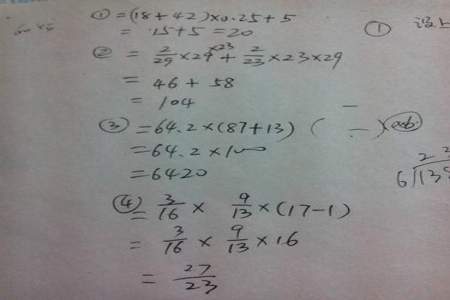 ① =(18+42)×0.25+5
= 15+5=20
② = 2/29 ×29×23 + 2/23 ×23×29
= 46+58
= 104
③ =64.2×(87+13) ( — )×ab
=64.2×100
=6420
④ = 3/16 × 9/13 ×(17-1)
= 3/16 × 9/13 ×16
= 27/23
①